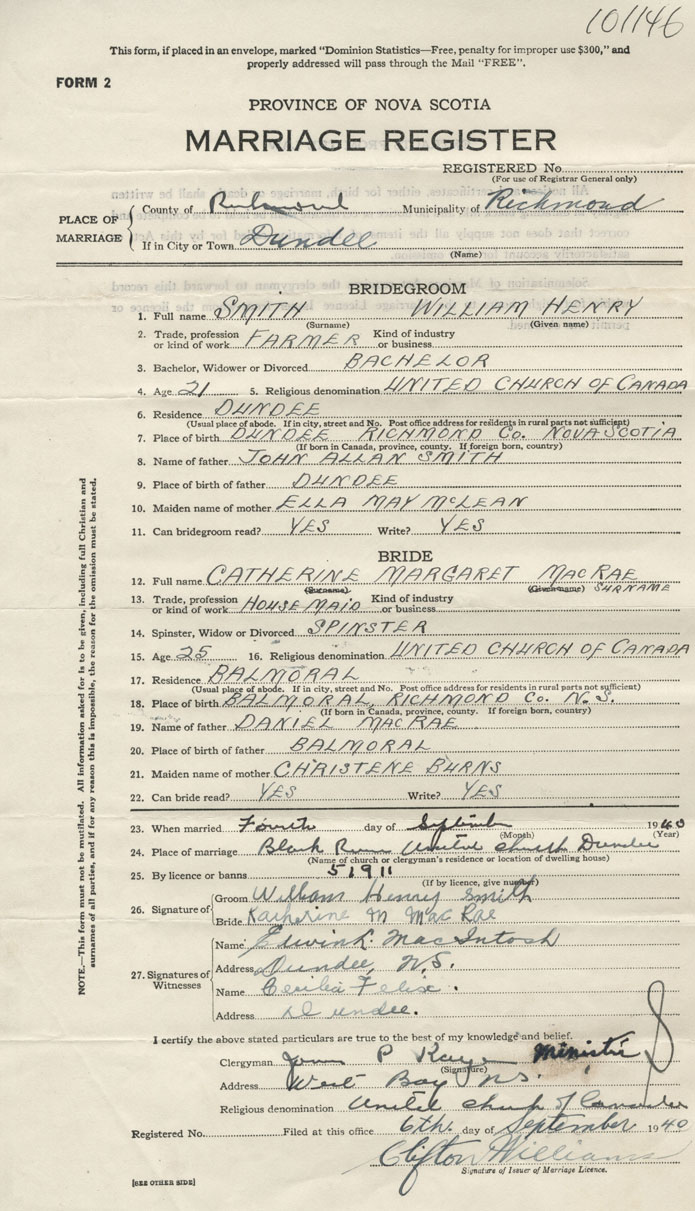 101146
This form, if placed in an envelope, marked "Dominion Statistics—Free, penalty for improper use $300," and
properly addressed will pass through the Mail "FREE".
FORM 2
PROVINCE OF NOVA SCOTIA
MARRIAGE REGISTER
REGISTERED No.
(For use of Registrar General only)
PLACE OF MARRIAGE
County of Richmond Municipality of Richmond
If in City or Town Dundee
(Name)
BRIDEGROOM
1. Full name SMITH WILLIAM HENRY
(Surname) (Given name)
2. Trade, profession or kind of work FARMER Kind of industry or business
3. Bachelor, Widower or Divorced BACHELOR
4. Age 21 5. Religious denomination UNITED CHURCH OF CANADA
6. Residence DUNDEE
(Usual place of abode. If in city, street and No. Post office address for residents in rural parts not sufficient)
7. Place of birth DUNDEE RICHMOND Co. NOVA SCOTIA
(If born in Canada, province, county. If foreign born, country)
8. Name of father JOHN ALLAN SMITH
9. Place of birth of father DUNDEE
10. Maiden name of mother ELLA MAY McLEAN
11. Can bridegroom read? YES Write? YES
BRIDE
12. Full name CATHERINE MARGARET MACRAE
(Surname) (Given name) SURNAME
13. Trade, profession or kind of work HOUSE MAID Kind of industry or business
14. Spinster, Widow or Divorced SPINSTER
15. Age 25 16. Religious denomination UNITED CHURCH OF CANADA
17. Residence BALMORAL
(Usual place of abode. If in city, street and No. Post office address for residents in rural parts not sufficient)
18. Place of birth BALMORAL, RICHMOND Co. N.S.
(If born in Canada, province, county. If foreign born, country)
19. Name of father DANIEL MACRAE
20. Place of birth of father BALMORAL
21. Maiden name of mother CHRISTENE BURNS
22. Can bride read? YES Write? YES
23. When married Fourth day of September 1940
(Month) (Year)
24. Place of marriage Black River United church Dundee
(Name of church or clergyman's residence or location of dwelling house)
25. By licence or banns 51911
(If by licence, give number)
26. Signature of
Groom William Henry Smith
Bride Katherine M MacRae
27. Signatures of Witnesses
Name Edwin K. MacIntosh
Address Dundee, N.S.
Name Cecilia Felix.
Address Dundee.
I certify the above stated particulars are true to the best of my knowledge and belief.
Clergyman P Kaye Minister
(Signature)
Address West Bay N.S.
Religious denomination United church of Canada
Registered No. Filed at this office 6th. day of September 1940
Clifton Williams
Signature of Issuer of Marriage Licence.
[SEE OTHER SIDE]
NOTE.—This form must not be mutilated. All information asked for is to be given, including full Christian and
surnames of all parties, and if for any reason this is impossible, the reason for the omission must be stated.